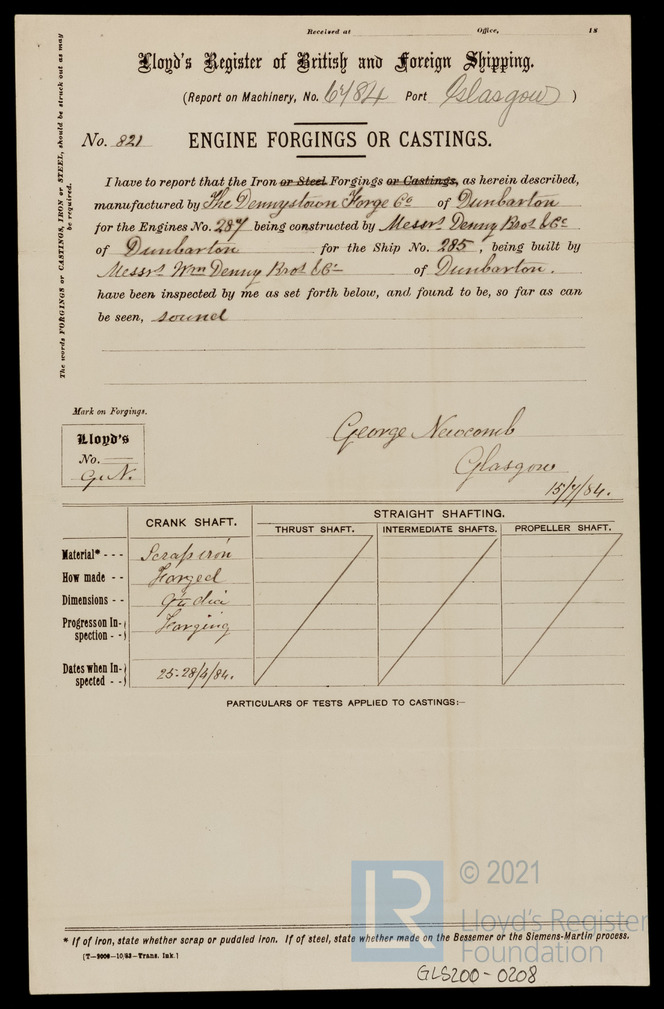 Received at Office, 18
Lloyd's Register of British and Foreign Shipping.
(Report on Machinery, No. 6484 Port Glasgow)
No. 821 ENGINE FORGINGS OR CASTINGS.
I have to report that the Iron or Steel Forgings or Castings, as herein described,
manufactured by The Dennystown Forge Co of Dunbarton
for the Engines No. 287 being constructed by Messrs Denny Bros & Co
of Dunbarton for the Ship No. 285, being built by
Messrs Wm Denny Bros & Co of Dunbarton.
have been inspected by me as set forth below, and found to be, so far as can
be seen, sound
The words FORGINGS or CASTINGS, IRON or STEEL, should be struck out as may
be required.
Mark on Forgings.
Lloyd's
No.
G.N.
George Newcomb
Glasgow
15/7/84.
CRANK SHAFT. STRAIGHT SHAFTING.
THRUST SHAFT. INTERMEDIATE SHAFTS. PROPELLER SHAFT.
Material* - - - Scrap iron
How made - - Forged
Dimensions - - dia
Progress on In-
spection - - Forging
Dates when In-
spected - - 25-28/4/84.
PARTICULARS OF TESTS APPLIED TO CASTINGS:—
© 2021
LR
Lloyd's Register
Foundation
* If of iron, state whether scrap or puddled iron. If of steel, state whether made on the Bessemer or the Siemens-Martin process.
[T—2009—10/83—Trans. Ink.]
GLS200-0208